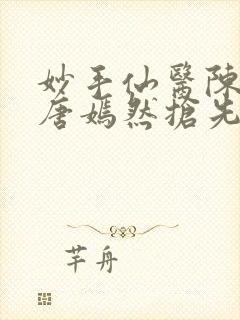 妙手仙醫陳
唐嫣然搶先
芊舟